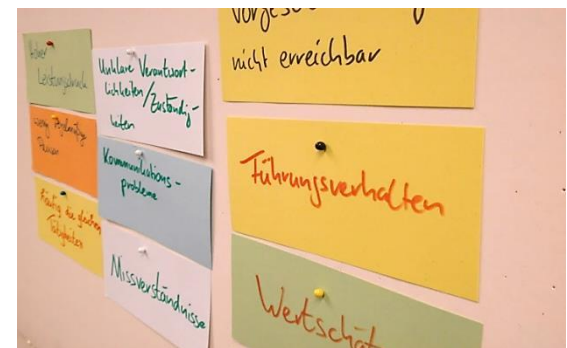 Hoher
Leistungsdruck
wenig regelmäßige
Pausen
häufig die gleichen
Tätigkeiten
Unklare Verantwort-
lichkeiten/Zuständig-
keiten
Kommunikations-
probleme
Missverständnisse
nicht erreichbar
Führungsverhalten